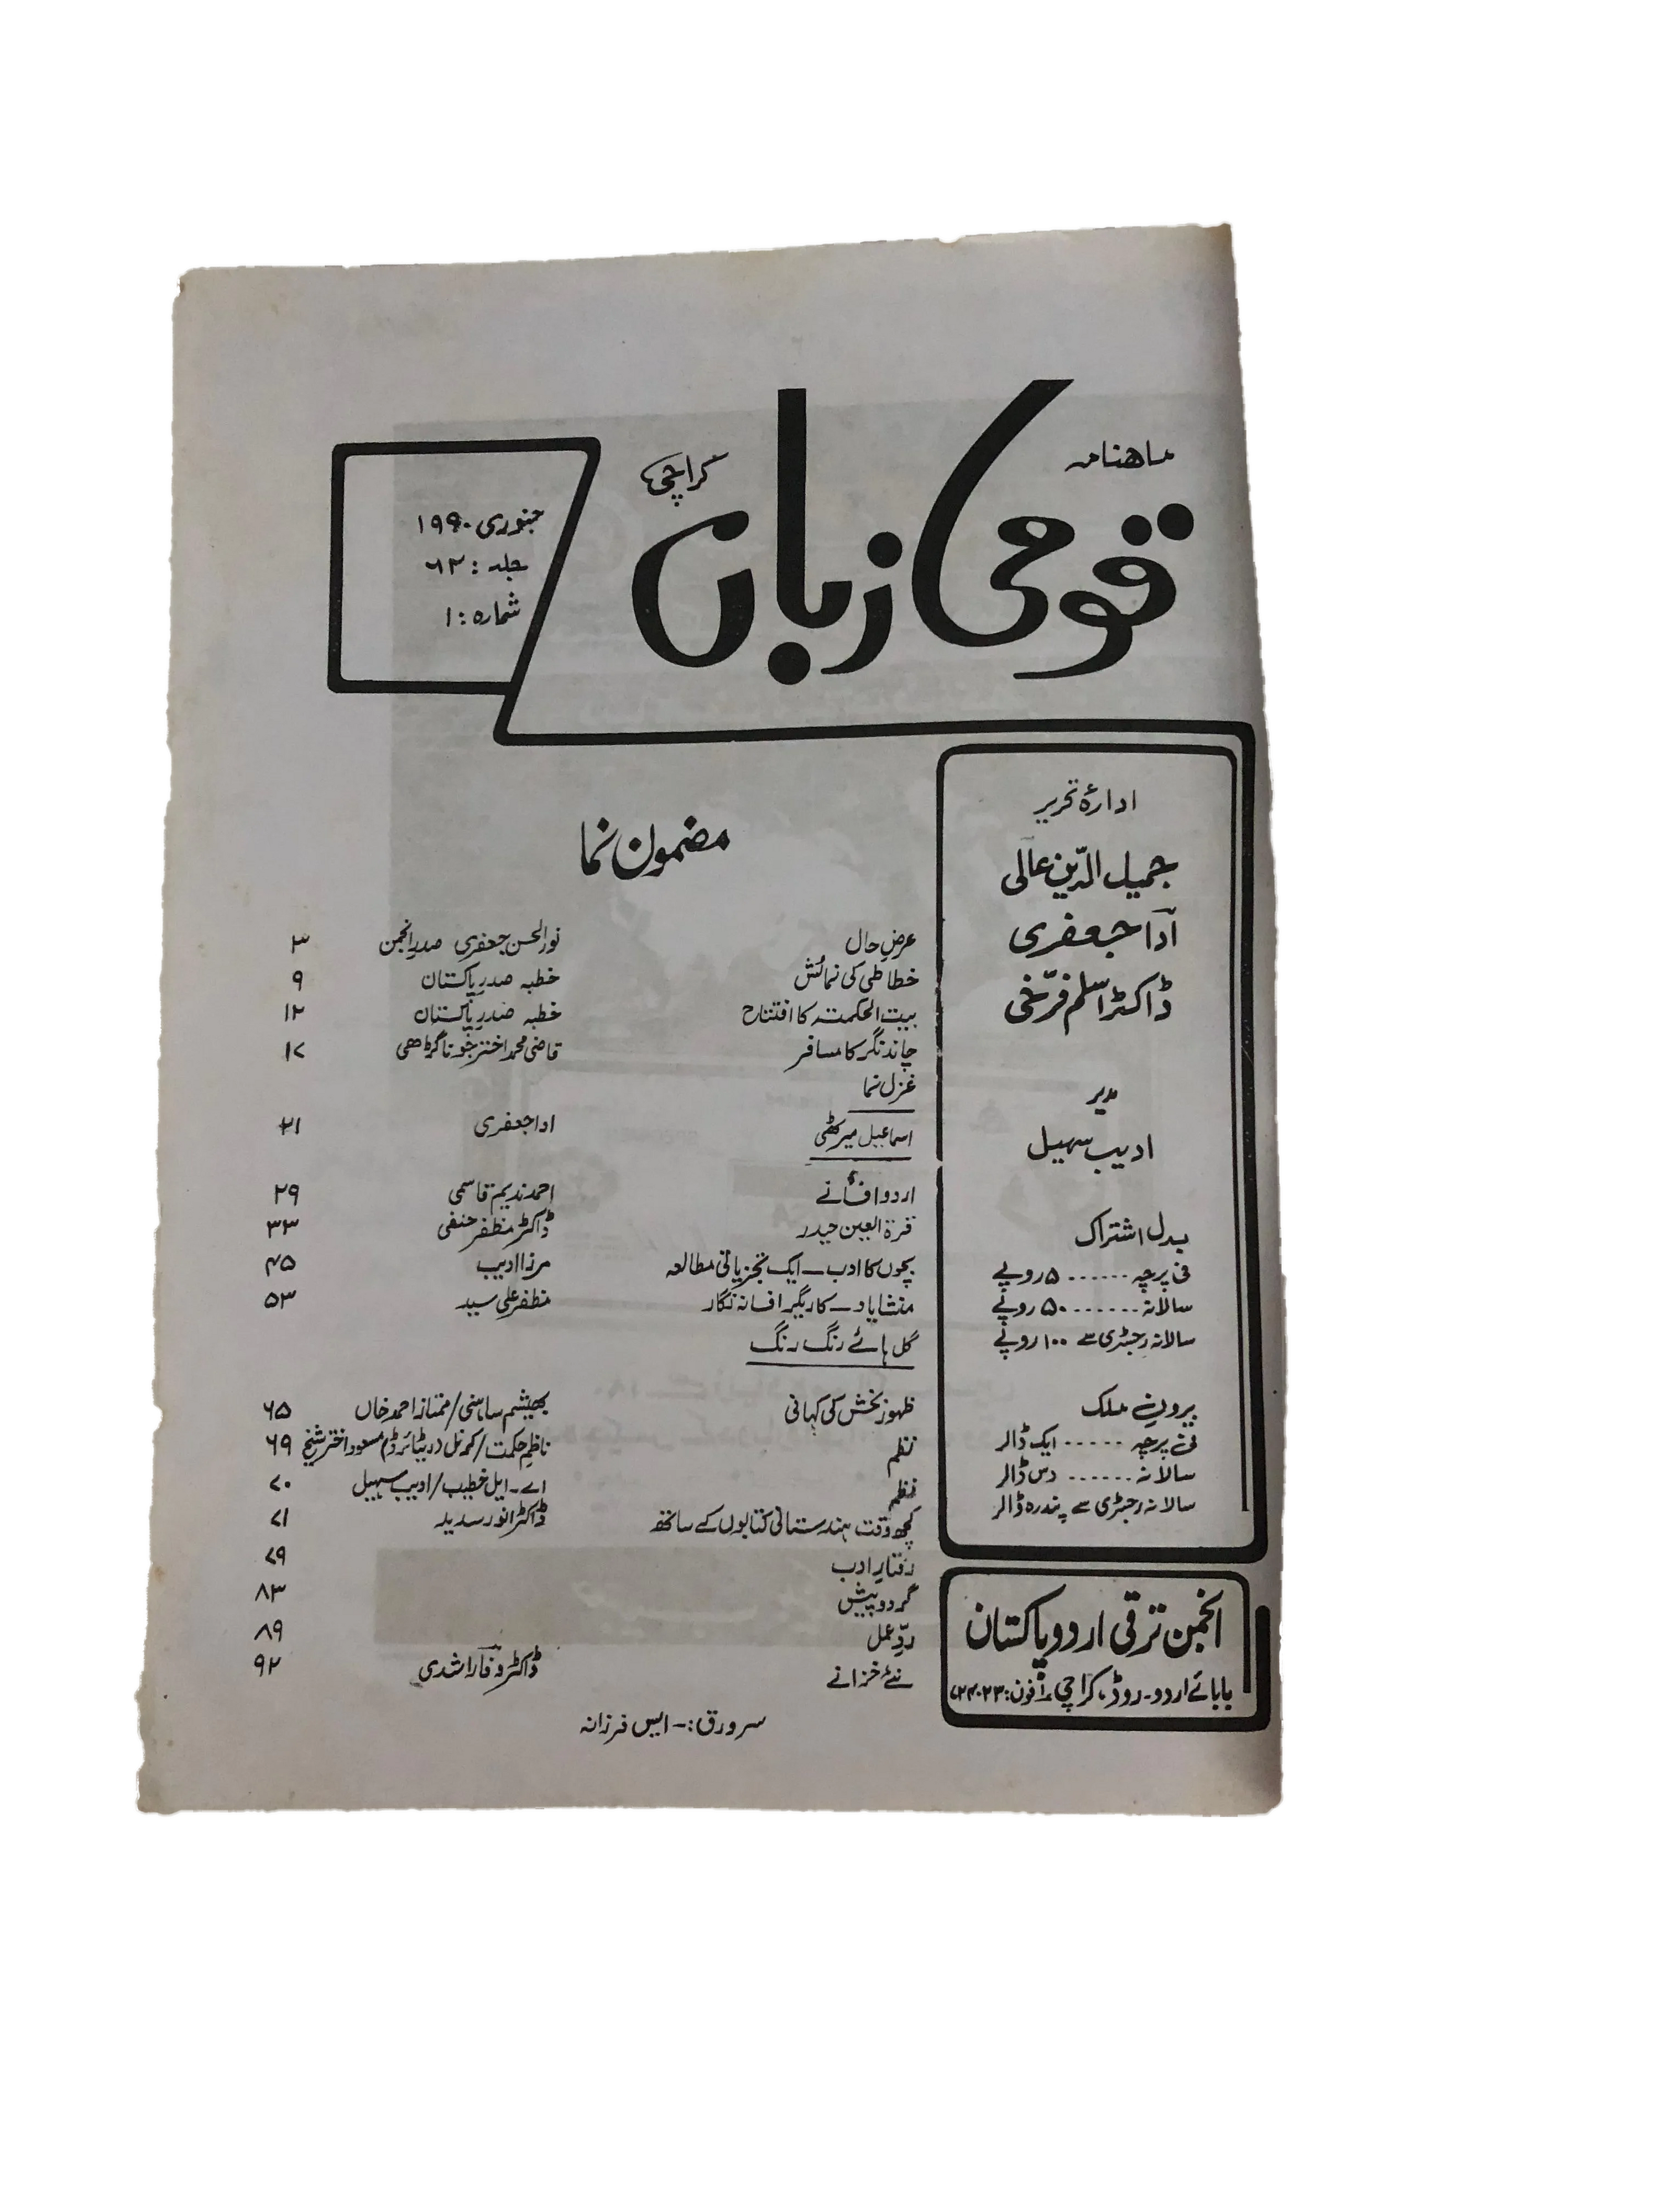 ماهنامہ
قومی زبان
کراچی
جنوری ۱۹۹۰
جلد : ۶۲
شمارہ : ۱
ادارۂ تحریر
جمیل الدّین عالی
اداؔ جعفری
ڈاکٹر اسلم فرّخی
مدیر
ادیب سہیل
بدل اشتراک
فی پرچہ ...... ۵ روپے
سالانہ ....... ۵۰ روپے
سالانہ رجسٹری سے ۱۰۰ روپے
بیرونِ ملک
فی پرچہ ..... ایک ڈالر
سالانہ ...... دس ڈالر
سالانہ رجسٹری سے پندرہ ڈالر
انجمن ترقی اردو پاکستان
بابائے اردو ۔ روڈ، کراچی ۱ فون : ۷۲۴۰۲۳
مضمون نما
عرضِ حال نورالحسن جعفری صدر انجمن ۳
خطاطی کی نمائش خطبہ صدر پاکستان ۹
بیت الحکمتہ کا افتتاح خطبہ صدر پاکستان ۱۲
چاند نگر کا مسافر قاضی محمد اختر جوناگڑھی ۱۷
غزل نما
اسماعیل میرٹھی ادا جعفری ۲۱
اردو افسانے احمد ندیم قاسمی ۲۹
قرۃ العین حیدر ڈاکٹر مظفر حنفی ۳۳
بچوں کا ادب ـ ایک تجزیاتی مطالعہ مرزا ادیب ۴۵
منشا یاد ـ کاریگر افسانہ نگار مظفر علی سید ۵۳
گل ہائے رنگ رنگ
ظہور بخش کی کہانی بھیشم ساہنی / ممتاز احمد خاں ۶۵
نظم ناظم حکمت / کرنل (ریٹائرڈ) مسعود اختر شیخ ۶۹
نظم اے ۔ ایل خطیب / ادیب سہیل ۷۰
کچھ وقت ہندستانی کتابوں کے ساتھ ڈاکٹر انور سدید ۷۱
رفتار ادب ۷۹
گردوپیش ۸۳
ردِّ عمل ۸۹
نئے خزانے ڈاکٹر وفا راشدی ۹۲
سرورق :- ایس فرزانہ